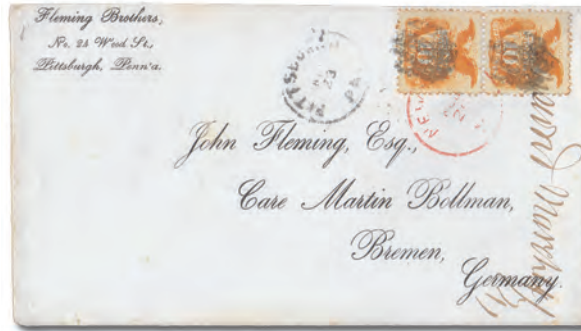 Fleming Brothers,
No. 24 Wood St.,
Pittsburgh, Penn'a.
PITTSBURGH
23
PA
10
10
NEW
John Fleming, Esq.,
Care Martin Bollman,
Bremen,
Germany.